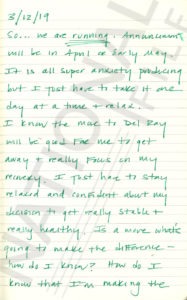 3/12/19
So... we are running. Announcement
will be in April or early May.
It is all super anxiety producing
but I just have to take it one
day at a time & relax.
I know the move to Del Ray
will be good for me to get
away & really focus on my
recovery. I just have to stay
relaxed and confident about my
decision to get really stable &
really healthy. Is a move what's
going to make the difference –
how do I know? How do I
know that I'm making the